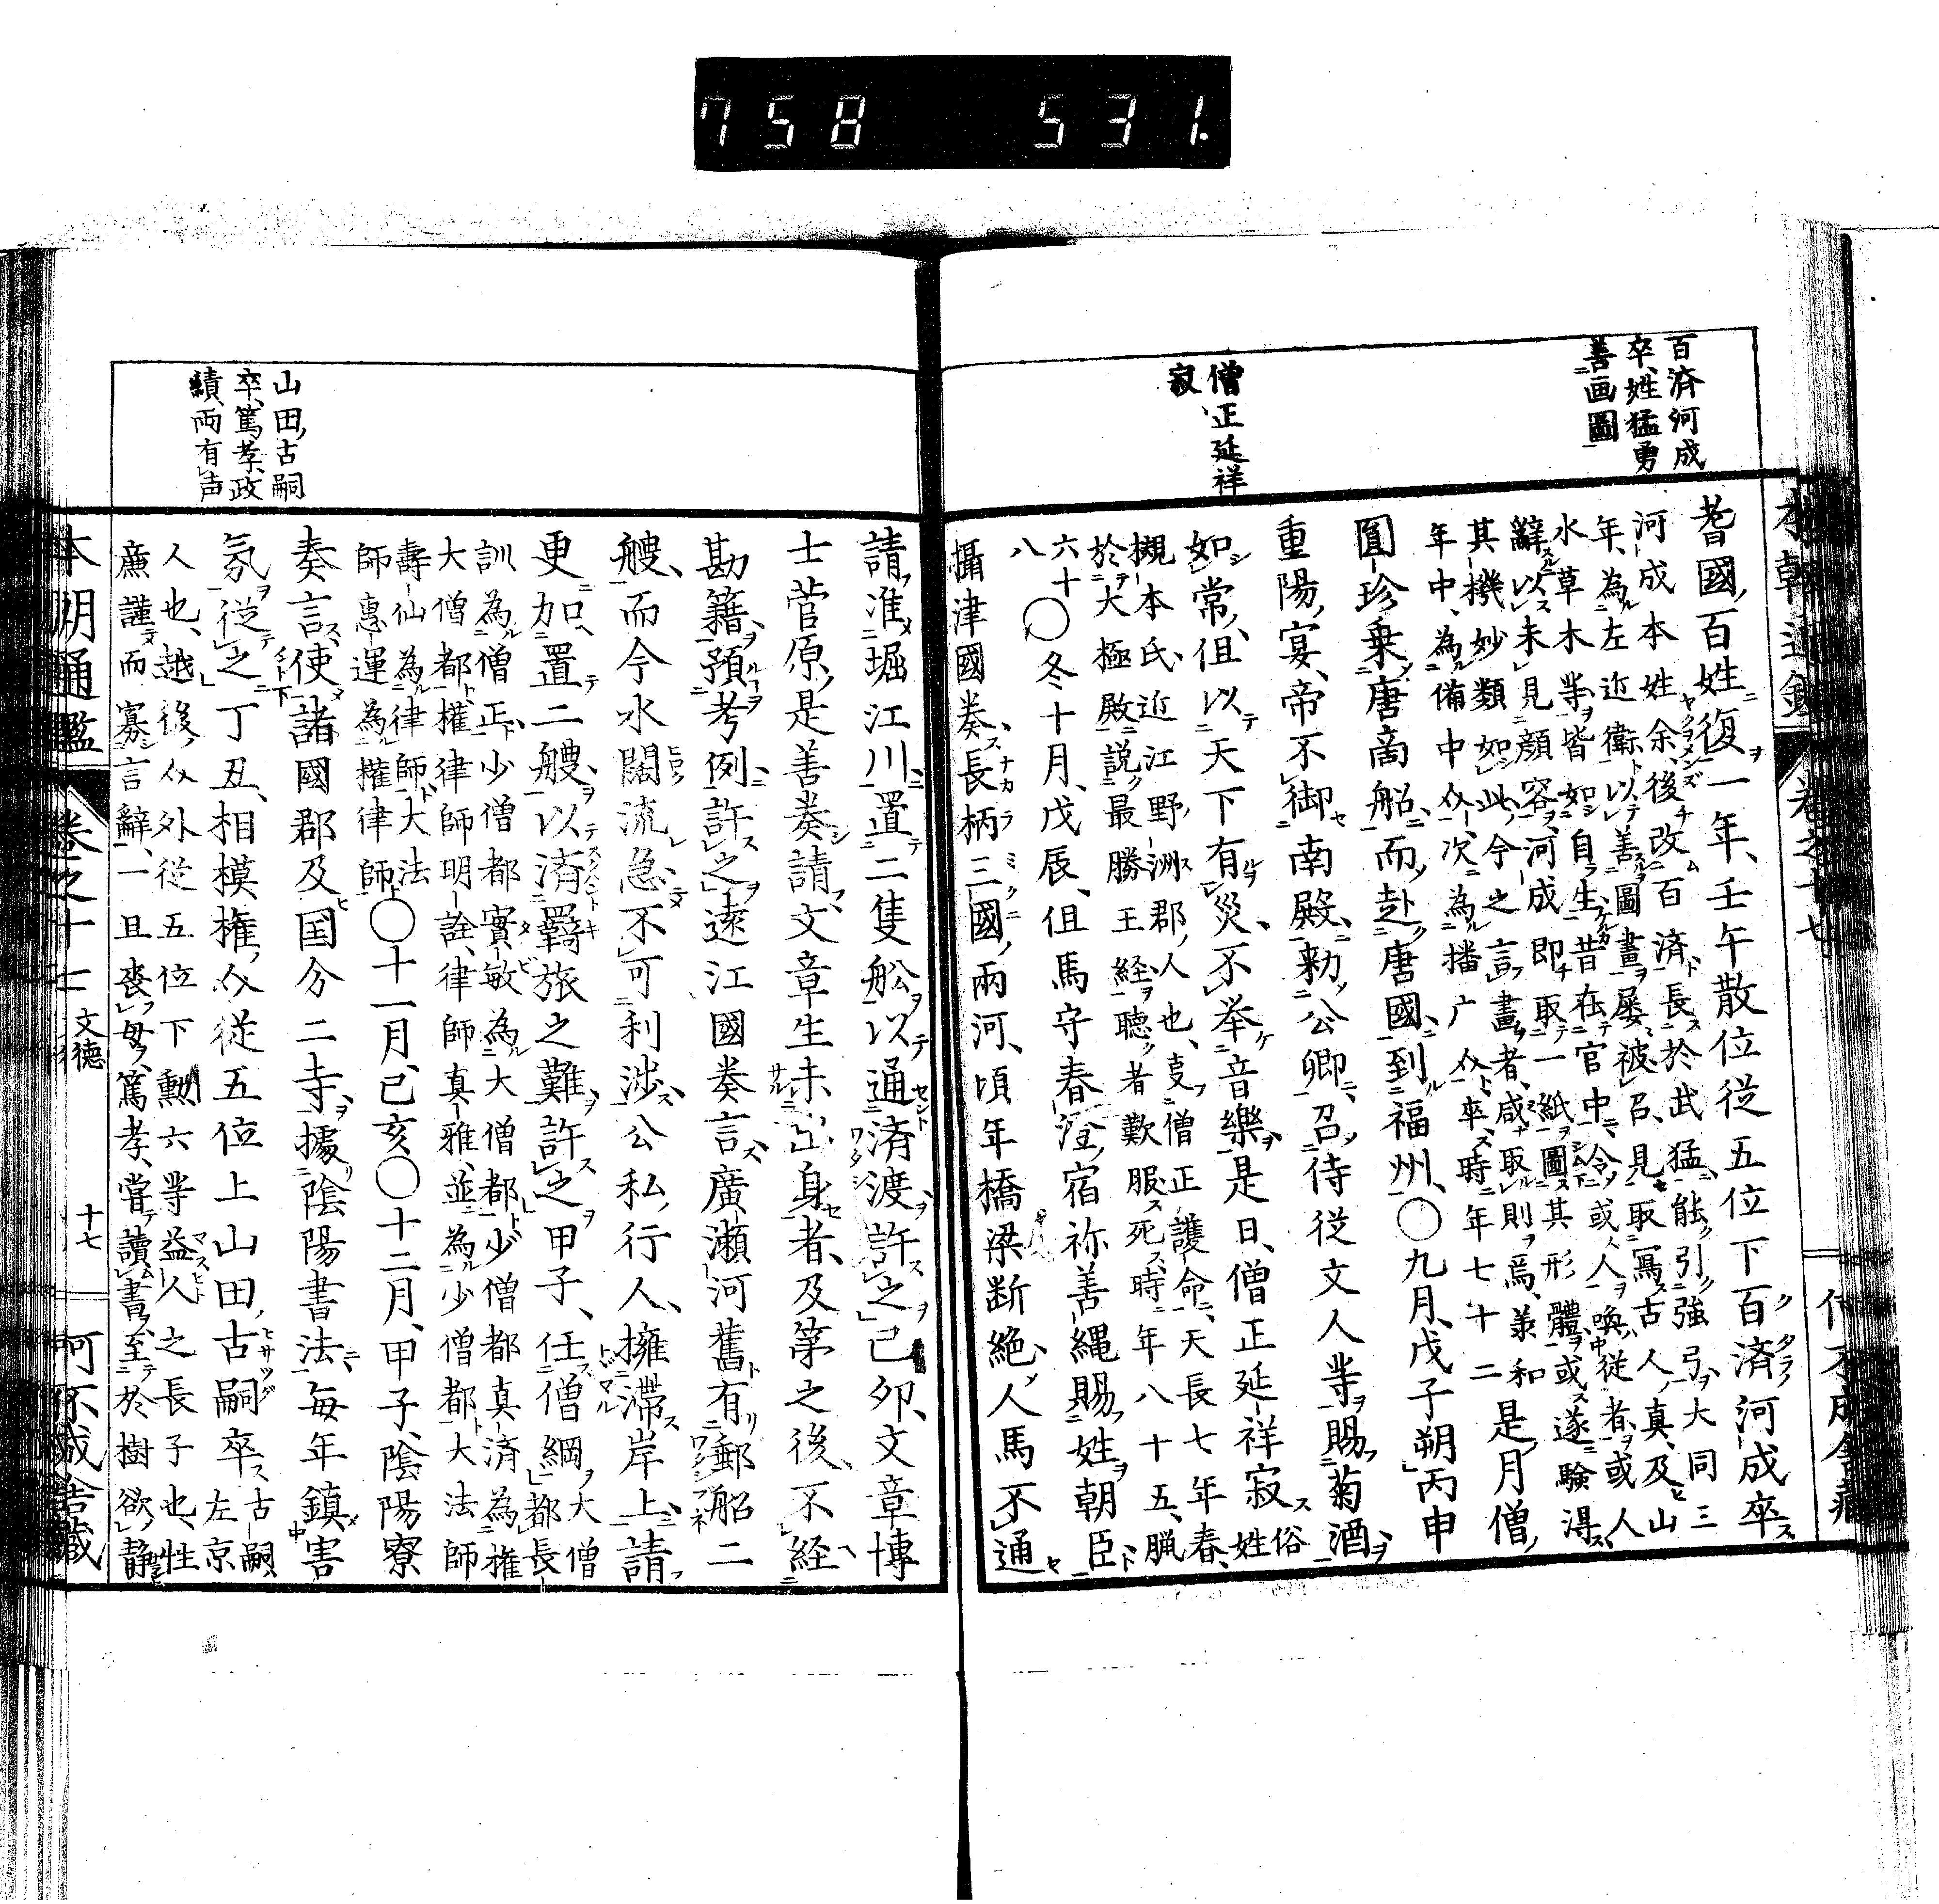 758 531.
百済河成
卒、姓猛勇
善画圖
僧正延祥
寂
耆國百姓復一年、壬午散位從五位下百済河成卒
河成本姓余、後改百済、長於武猛、能引強弓、大同三
年、為左近衛、以善圖畫、屡被召見、取寫古人真、及山
水草木等、皆如自生、昔在官中、令或人喚從者、或人
辭以未見顔容、河成即取一紙、圖其形體、或遂驗得
其機妙類如此、今之言畫者、咸取則焉、兼和
年中、為備中介、次為播广介、卒、時年七十二是月僧
圓珍乗唐商船而赴唐國、到福州、〇九月、戊子朔丙申
重陽宴、帝不御南殿、勅公卿、召侍從文人等賜菊酒
如常、但以天下有災、不举音樂、是日、僧正延祥寂俗姓
槻本氏、近江野洲郡人也、事僧正護命、天長七年春、
於大極殿説最勝王経、聽者歎服、死時年八十五、臘
六十
八
〇冬十月、戊辰、但馬守春澄宿祢善縄賜姓朝臣
攝津國奏、長柄三國兩河、頃年橋梁断絶、人馬不通
請准堀江川、置二隻舩以通済渡、許之己卯、文章博
士菅原是善奏請、文章生未出身者、及第之後、不経
勘籍預考例許之遠江國奏言、廣瀬河舊有郵船二
艘、而今水闊流急、不可利渉、公私行人、擁滞岸上、請
更加置二艘、以済羇旅之難、許之甲子、任僧綱大僧都長
訓為僧正、少僧都實敏為大僧都、少僧都真済為權
大僧都、權律師明詮、律師真雅、並為少僧都、大法師
壽仙為律師、大法
師惠運為權律師
〇十一月、己亥〇十二月、甲子、陰陽寮
奏言、使諸國郡及国分二寺、據陰陽書法、毎年鎮害
氣從之丁丑、相模權介從五位上山田古嗣卒古嗣、左京
人也、越後介外從五位下勳六等益人之長子也、性
廉謹而寡言辭、一旦喪母、篤孝、嘗讀書、至於樹欲静
山田古嗣
卒、篤孝、政
績両有声
本朝通鑑 卷之十七 文德 十七